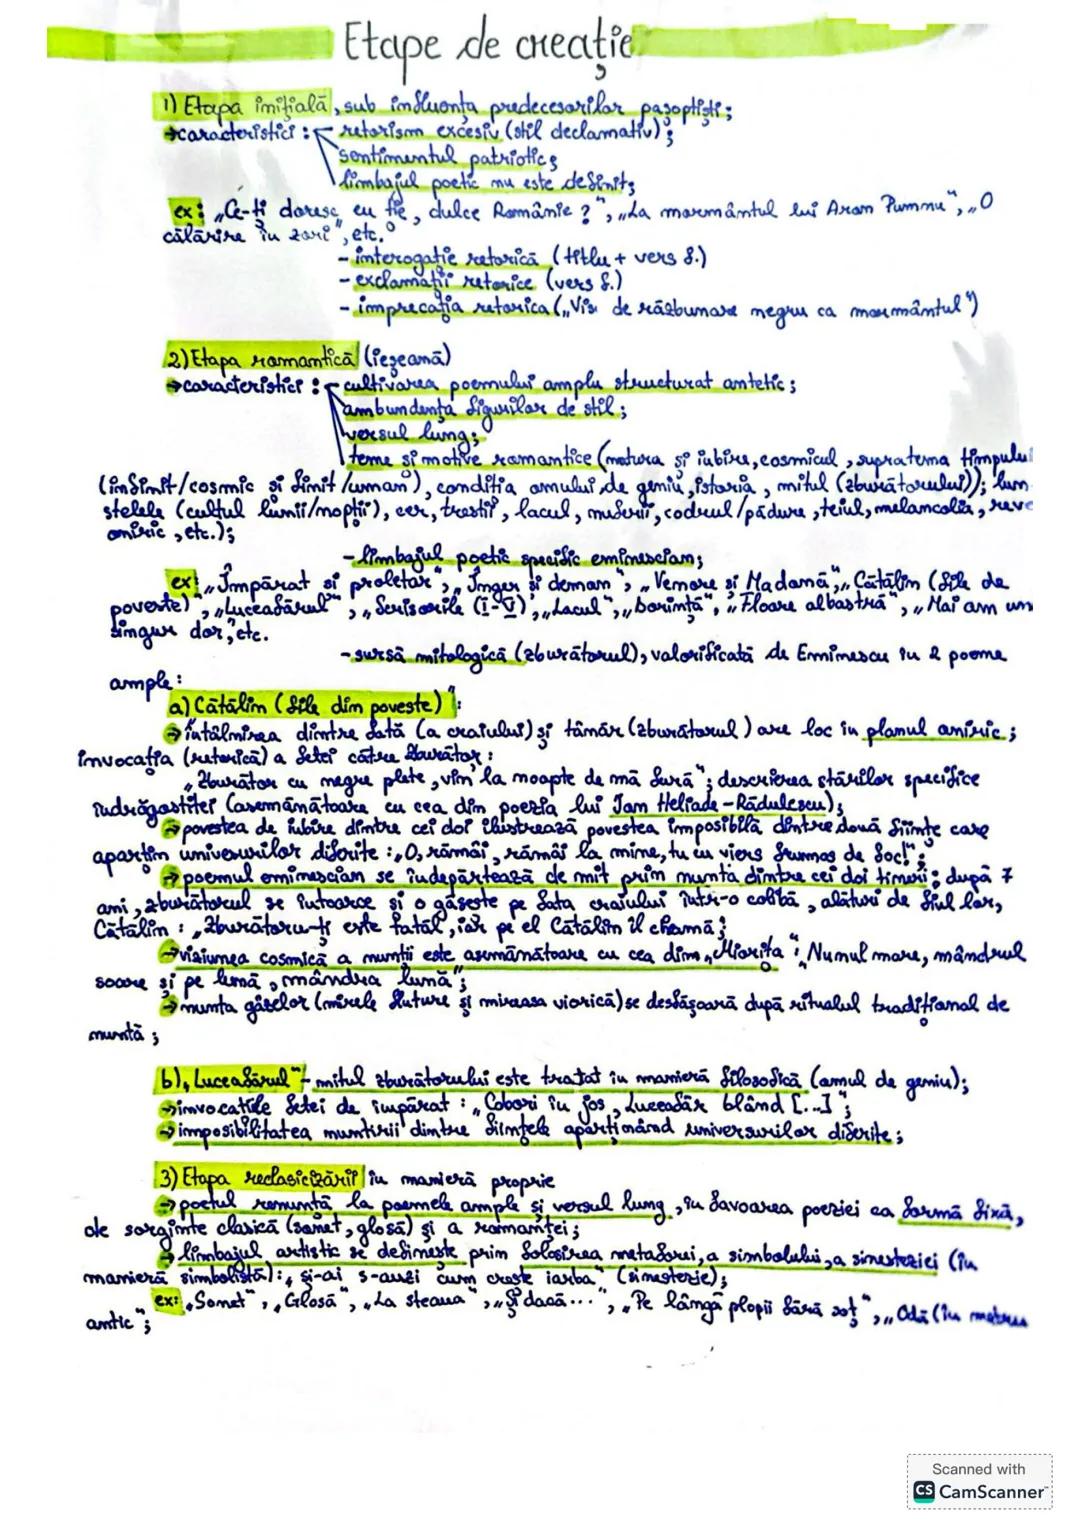 Etape de creație
1) Etapa inițială, sub influența predecesorilor pașoptiști;
→caracteristici: retorism excesiv (stil declamativ);
sentimentul patriotic;
limbajul poetic nu este definit;
ex: „Ce-ți doresc eu ție, dulce Românie?", „La mormântul lui Aron Pumnu", „O
călărire în zori", etc.
- interogație retorică (titlu + vers 8.)
- exclamații retorice (vers 8.)
- imprecația retorica („Vis de răzbunare negru ca mormântul")
2) Etapa romantică (ieșeană)
→caracteristici: cultivarea poemului amplu structurat antetic;
ambundența figurilor de stil;
versul lung;
teme și motive romantice (natura și iubire, cosmicul, supratema timpului
(infinit/cosmic și finit/uman), condiția omului de geniu, istoria, mitul (zburătorului)); lun
stelele (cultul lumii/nopții), cer, trestii, lacul, codrul/pădure, teiul, melancolia, reve
oniric, etc.);
- limbajul poetic specific eminescian;
ex: „Împărat și proletar", „Înger și demon", „Venere și Madonă", „Cătălin (file de
poveste)", „Luceafărul", „Scrisorile (I-V)", „Lacul", „Dorință", „Floare albastră", „Mai am un
singur dor", etc.
- sursă mitologică (zburătorul), valorificată de Emminescu în 2 poeme
ample:
a) Cătălin (file din poveste)":
→ întâlnirea dintre fată (a craiului) și tânăr (zburătorul) are loc în planul oniric;
invocația (retorică) a fetei către zburător:
„Zburător cu negre plete, vin' la noapte de mă fură"; descrierea stărilor specifice
îndrăgostitei (asemănătoare cu cea din poezia lui Ion Heliade-Rădulescu);
→ povestea de iubire dintre cei doi ilustrează povestea imposibilă dintre două ființe care
aparțin universurilor diferite: „O, rămâi, rămâi la mine, tu cu viers frumos de foc!";
→ poemul eminescian se îndepărtează de mit prin nunta dintre cei doi tineri; după 7
ani, zburătorul se întoarce și o găsește pe fata craiului într-o colibă, alături de fiul lor,
Cătălin: „Zburătoru-ți este tatăl, iar pe el Cătălin îl cheamă;
→ viziunea cosmică a nunții este asemănătoare cu cea din „Miorița"; Nunul mare, mândrul
soare și pe lună, mândra lună";
→ nunta gâzelor (mirele fluture și mireasa viorică) se desfășoară după ritualul tradițional de
nuntă;
b) „Luceafărul" - mitul zburătorului este tratat în manieră filosofică (omul de geniu);
→ invocațiile fetei de împărat: „Cobori în jos, luceafăr blând [...]";
→ imposibilitatea nuntirii dintre ființele aparținând universurilor diferite;
3) Etapa reclasicizării în manieră proprie
→ poetul renunță la poemele ample și versul lung, în favoarea poeziei ca formă fixă,
de sorginte clasică (sonet, glosă) și a romanței;
→ limbajul artistic se definește prin folosirea metaforei, a simbolului, a sinesteziei (în
manieră simbolistă): „și-ai s-auzi cum crește iarba" (sinestezie);
ex: „Sonet", „Glosă", „La steaua", „Și dacă...", „Pe lângă plopii fără soț", „Odă (în metru
antic";
Scanned with
CS CamScanner